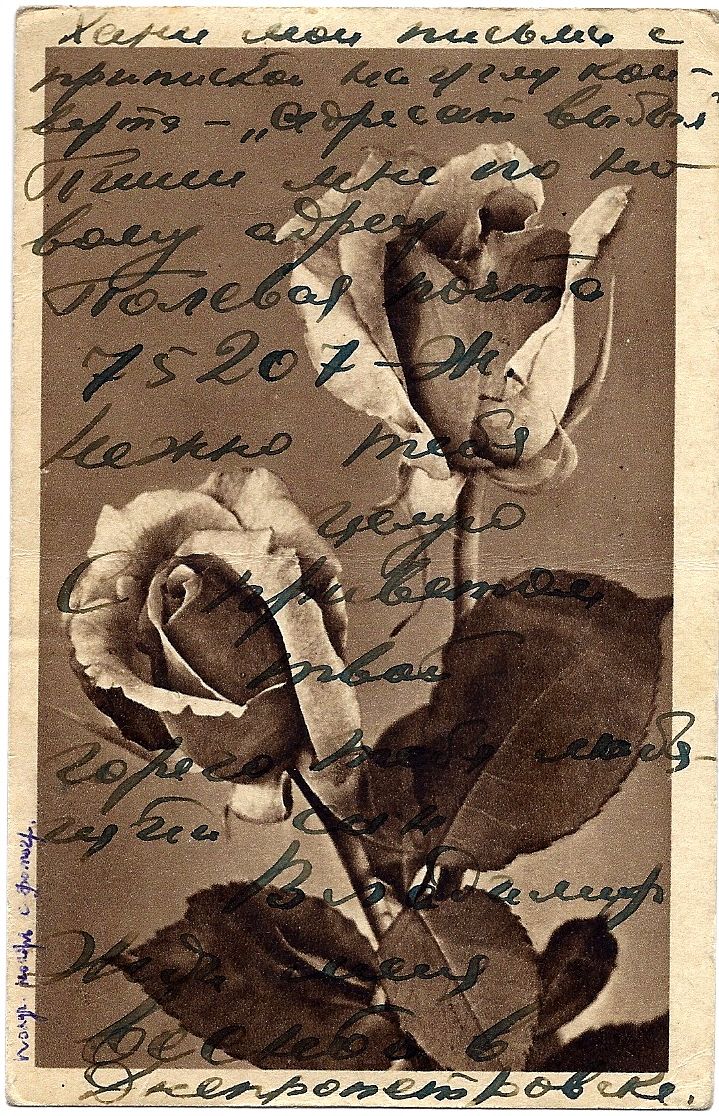 мои письма с
припиской на углу кон-
верта – „Адресат выбыл"
Пиши мне по но-
вому адресу
Полевая почта
75207–Ж.
Нежно тебя
целую
С приветом
твой
горячо тебя любя-
щий сын
Владимир
Жди меня
весной в
Днепропетровске.